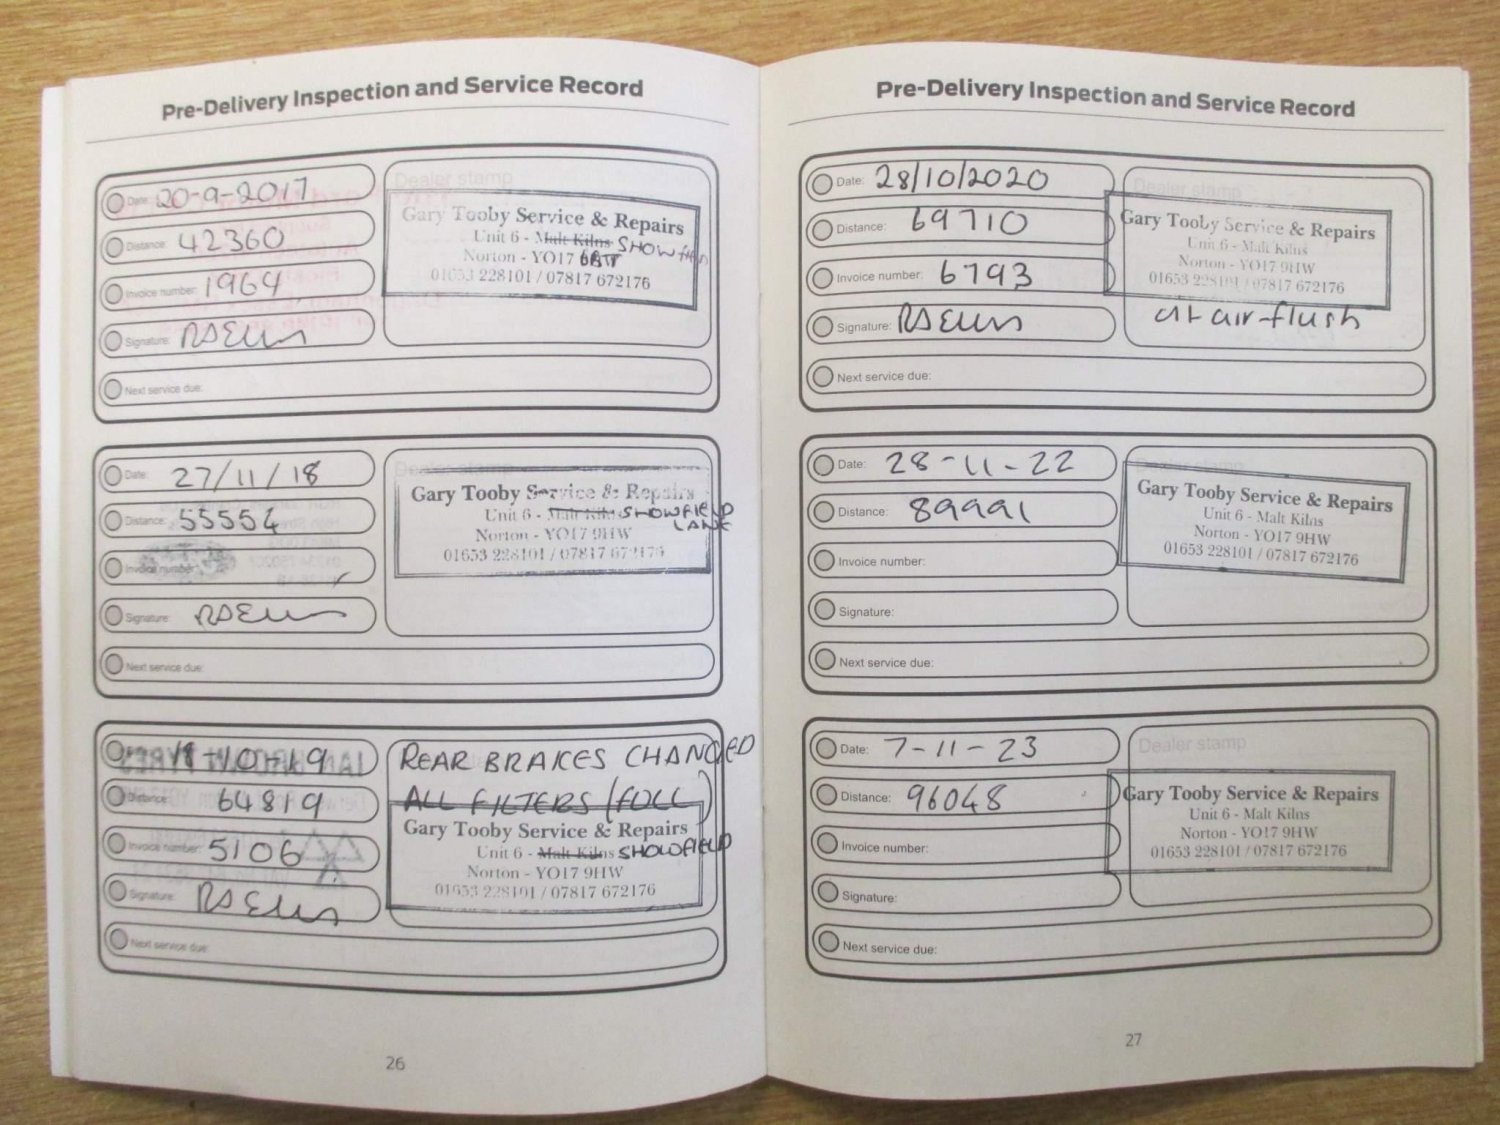 Pre-Delivery Inspection and Service Record
Date: 20-9-2017
Distance: 42360
Invoice number: 1964
Signature:
Next service due:
Dealer stamp
Gary Tooby Service & Repairs
Unit 6 - Malt Kilns SHOWFIELD
Norton - YO17
01653 228101 / 07817 672176
Date: 27/11/18
Distance: 55554
Invoice number:
Signature:
Next service due:
Dealer stamp
Gary Tooby Service & Repairs
Unit 6 - Malt Kilns SHOWFIELD
LANE
Norton - YO17 9HW
01653 228101 / 07817 672176
18-10-19
Distance: 64819
Invoice number: 5106
Signature:
Next service due:
REAR BRAKES CHANGED
ALL FILTERS (FULL)
Gary Tooby Service & Repairs
Unit 6 - Malt Kilns SHOWFIELD
Norton - YO17 9HW
01653 228101 / 07817 672176
26
Pre-Delivery Inspection and Service Record
Date: 28/10/2020
Distance: 69710
Invoice number: 6793
Signature:
Next service due:
Dealer stamp
Gary Tooby Service & Repairs
Unit 6 - Malt Kilns
Norton - YO17 9HW
01653 228101 / 07817 672176
air-flush
Date: 28-11-22
Distance: 89991
Invoice number:
Signature:
Next service due:
Dealer stamp
Gary Tooby Service & Repairs
Unit 6 - Malt Kilns
Norton - YO17 9HW
01653 228101 / 07817 672176
Date: 7-11-23
Distance: 96048
Invoice number:
Signature:
Next service due:
Dealer stamp
Gary Tooby Service & Repairs
Unit 6 - Malt Kilns
Norton - YO17 9HW
01653 228101 / 07817 672176
27